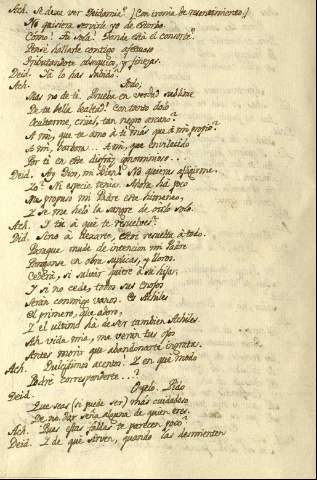 Ach. Se dexa ver Deidamia? (Con ironia de resentimiento.)
No quisiera servirle yo de estorbo.
Cómo! Tú sola! Donde está el consorte?
Pensé hallarle contigo afectuoso
Tributandote obsequios, y finezas.
Deid. Tú lo has sabido?
Ach. Todo,
Mas no de ti. Prueba en verdad sublime
De tu bella lealtad! Con tanto dolo
Ocultarme, cruel, tan negro arcano?
A mi, que te amo à ti mas que à mi propio?
A mi, barbara.. A mi, que envilecido
Por ti en este disfraz ignominioso..
Deid. Ay Dios, mi bien! No quieras afligirme.
Yo! Ni especie tenia. Ahora ha poco
Me propuso mi Padre este himeneo,
Y se me heló la sangre de oirlo solo.
Ach. Y tú à que te resuelves?
Did. Sino à dexarte, estoi resuelta à todo.
Porque mude de intencion mi Padre
Pondranse en obra suplicas, y lloros.
Cederá, si salvar quiere à su hija.
Y si no cede, todos sus enojos
Serán conmigo vanos. Es Achiles
El primero, que adoro,
Y el ultimo ha de ser tambien Achiles.
Ah vida mia, me verán tus ojos
Antes morir que abandonarte ingrata.
Ach. Dulcisimos acentos! Y en que modo
Podré corresponderte...?
Deid. Oyelo. Pido
Que seas (si puede ser) mas cuidadoso
De no dar seña alguna de quien eres.
Ach. Pues estas faldas te parecen poco?
Deid. Y de qué sirven, quando las desmienten